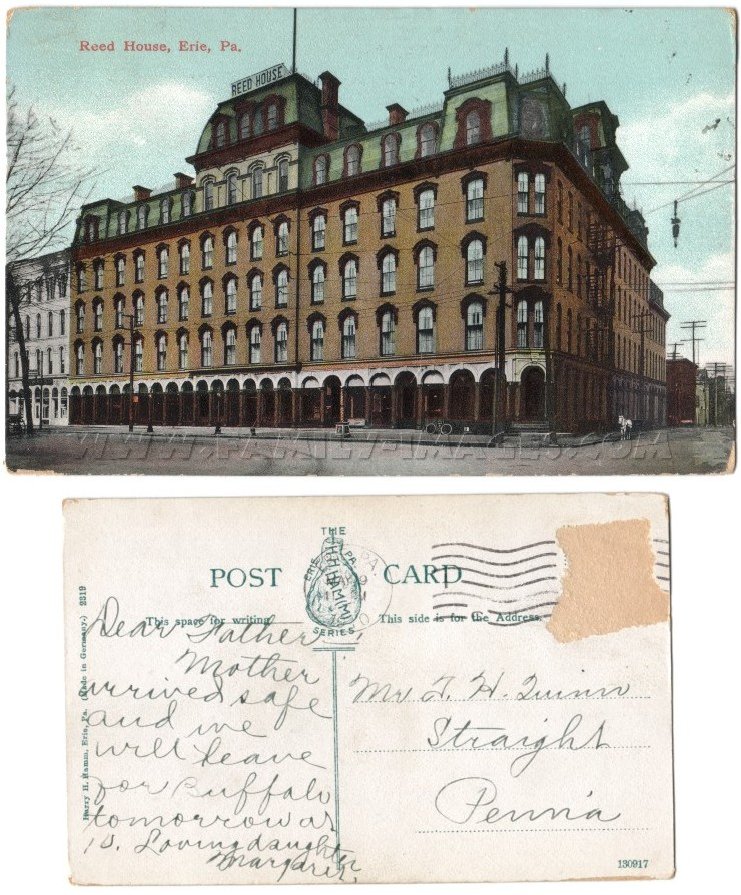 Reed House, Erie, Pa.
REED HOUSE
WWW.FAMILY-IMAGES.COM
THE
POST CARD
ERIE PA.
HAMM
SERIES
This space for writing
This side is for the Address.
Dear Father
Mother
arrived safe
and we
will leave
for Buffalo
tomorrow at
10. Loving daughter
Margaret.
Mr T. H. Quinn
Straight
Penn'a
Harry H. Hamm, Erie, Pa. (Made in Germany.) 2319
130917